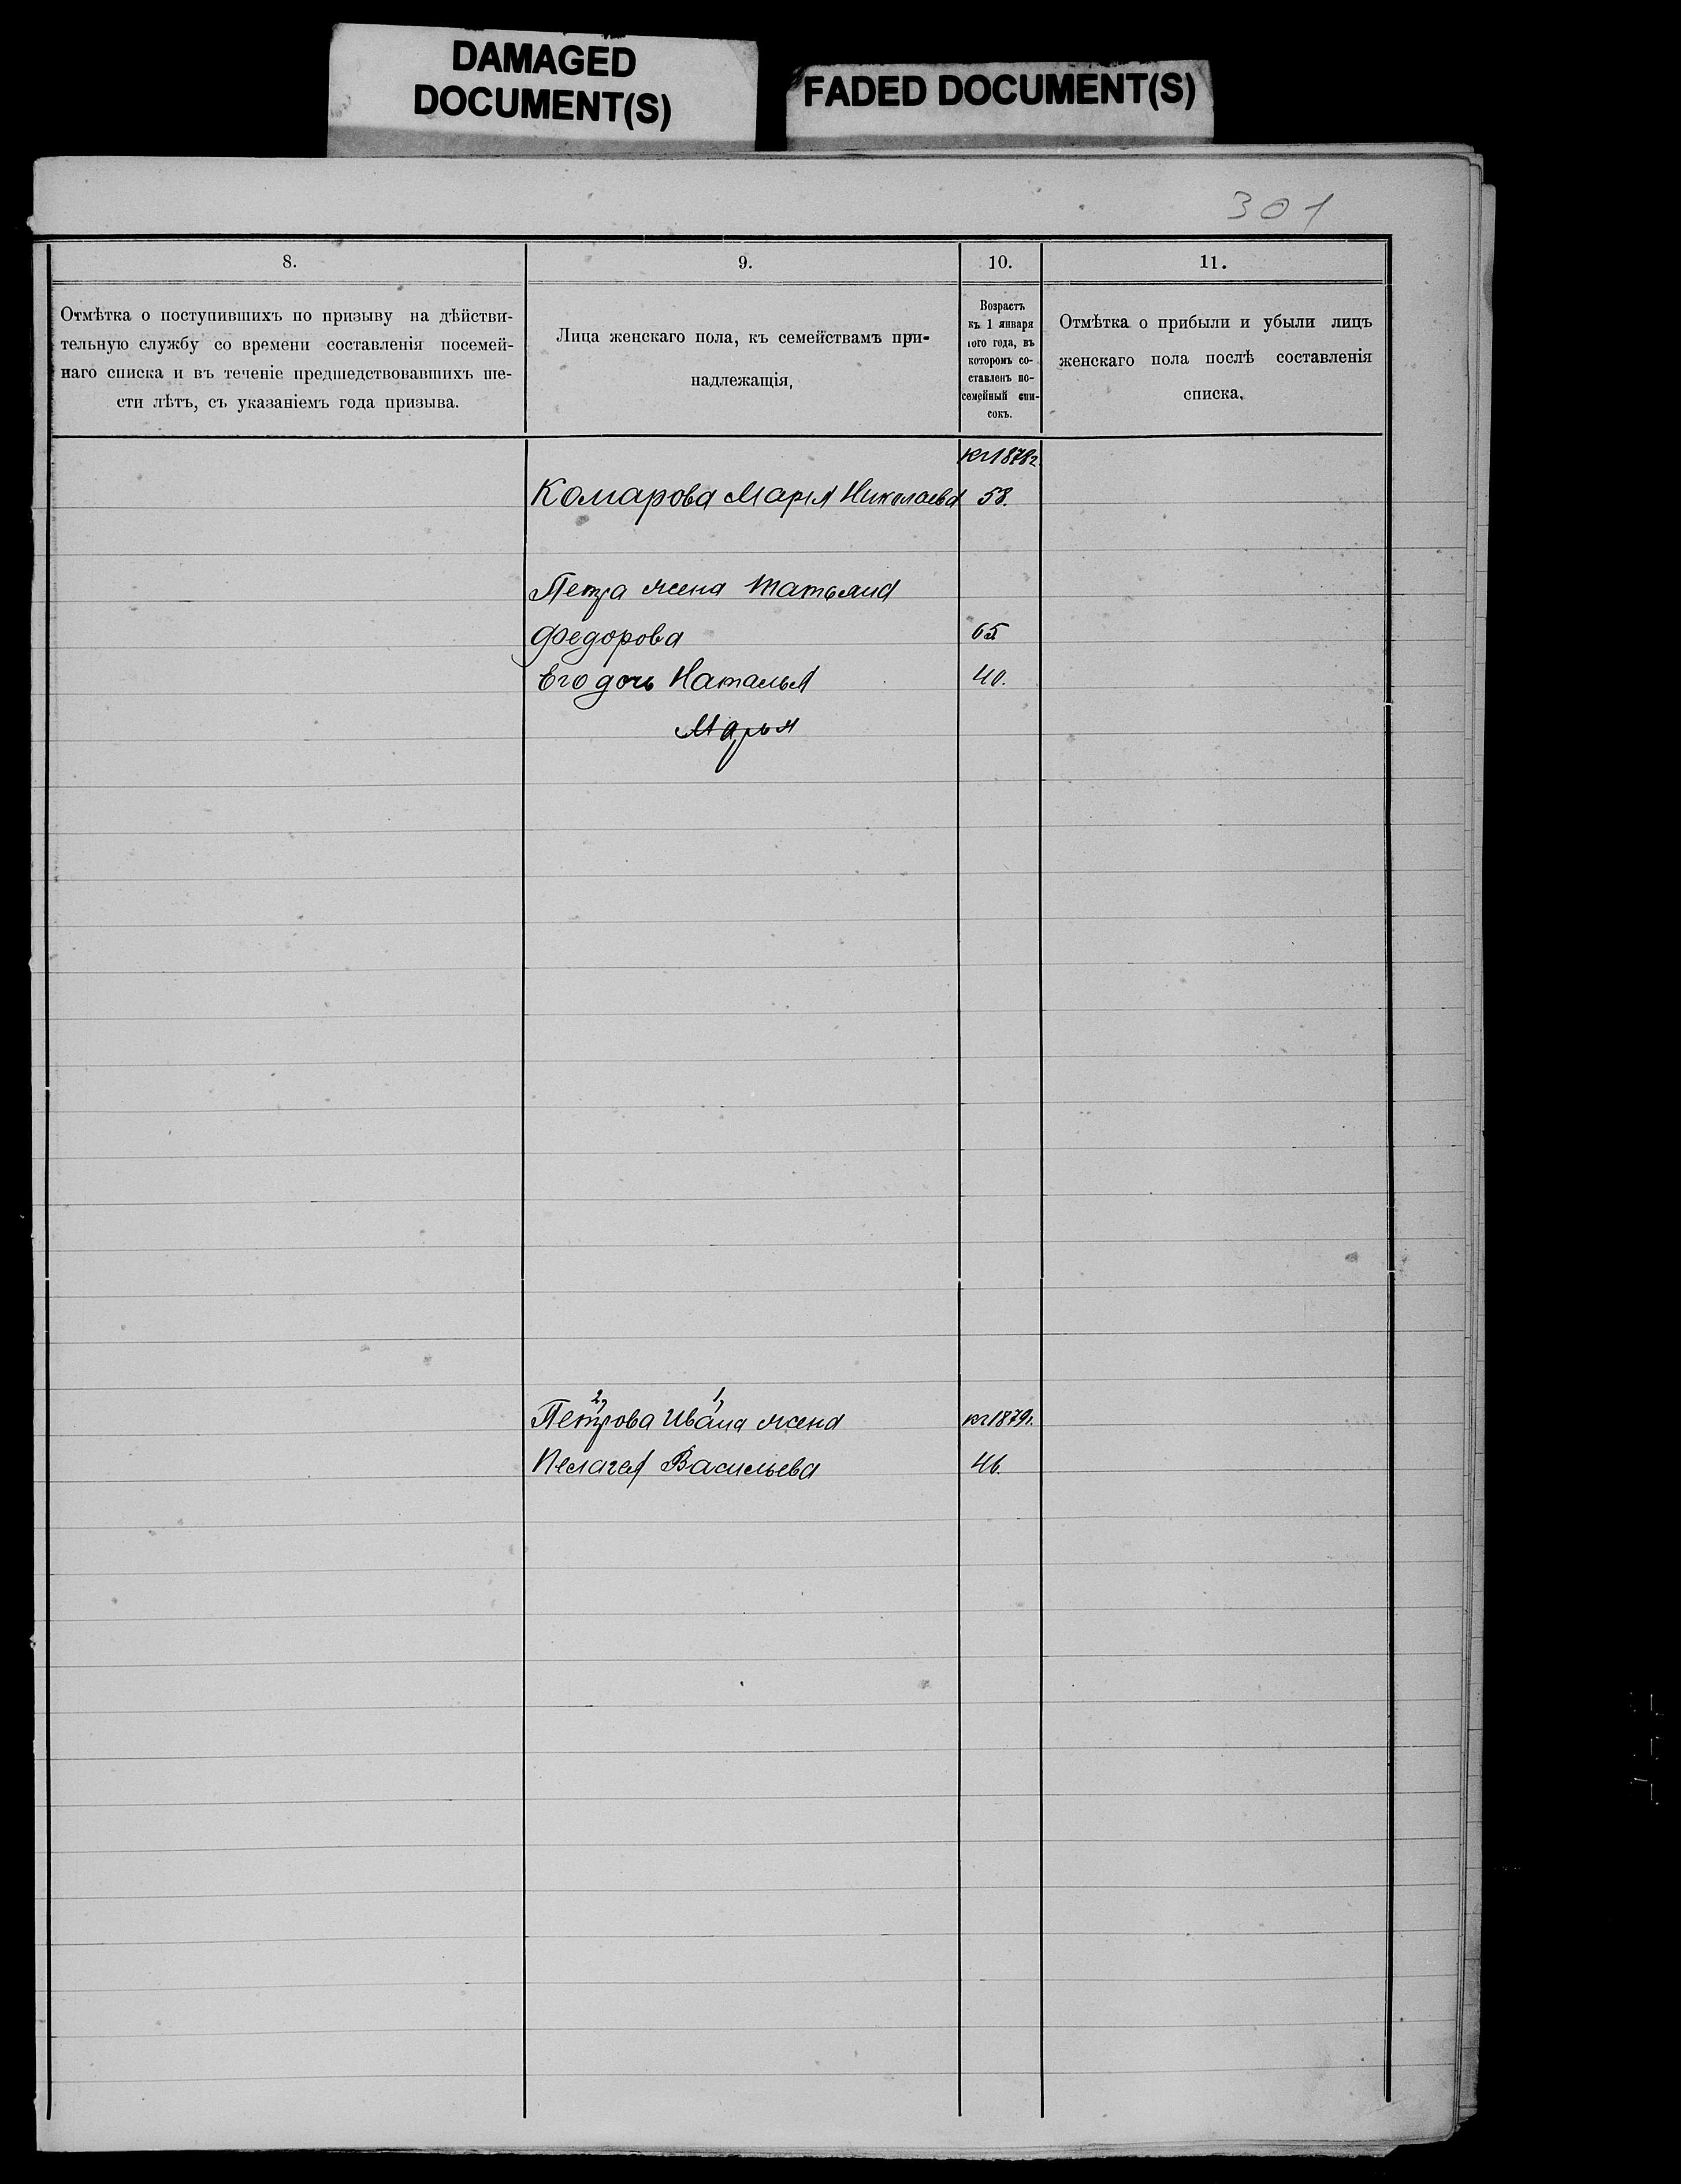 DAMAGED
DOCUMENT(S)
FADED DOCUMENT(S)
301
8.
9.
10.
11.
Отмѣтка о поступившихъ по призыву на дѣйстви-
тельную службу со времени составленія посемей-
наго списка и въ теченіе предшедствовавшихъ ше-
сти лѣтъ, съ указаніемъ года призыва.
Лица женскаго пола, къ семействамъ при-
надлежащія,
Возрастъ
къ 1 января
того года, въ
которомъ со-
ставленъ по-
семейный спи-
сокъ.
Отмѣтка о прибыли и убыли лицъ
женскаго пола послѣ составленія
списка.
1878г
Комарова Марія Николаева 58.
Петра жена Татьяна
Федорова 65
Его дочь Наталья 40.
Марья
2, 1,
Петрова Ивана жена 1879г.
Пелагея Васильева 46.